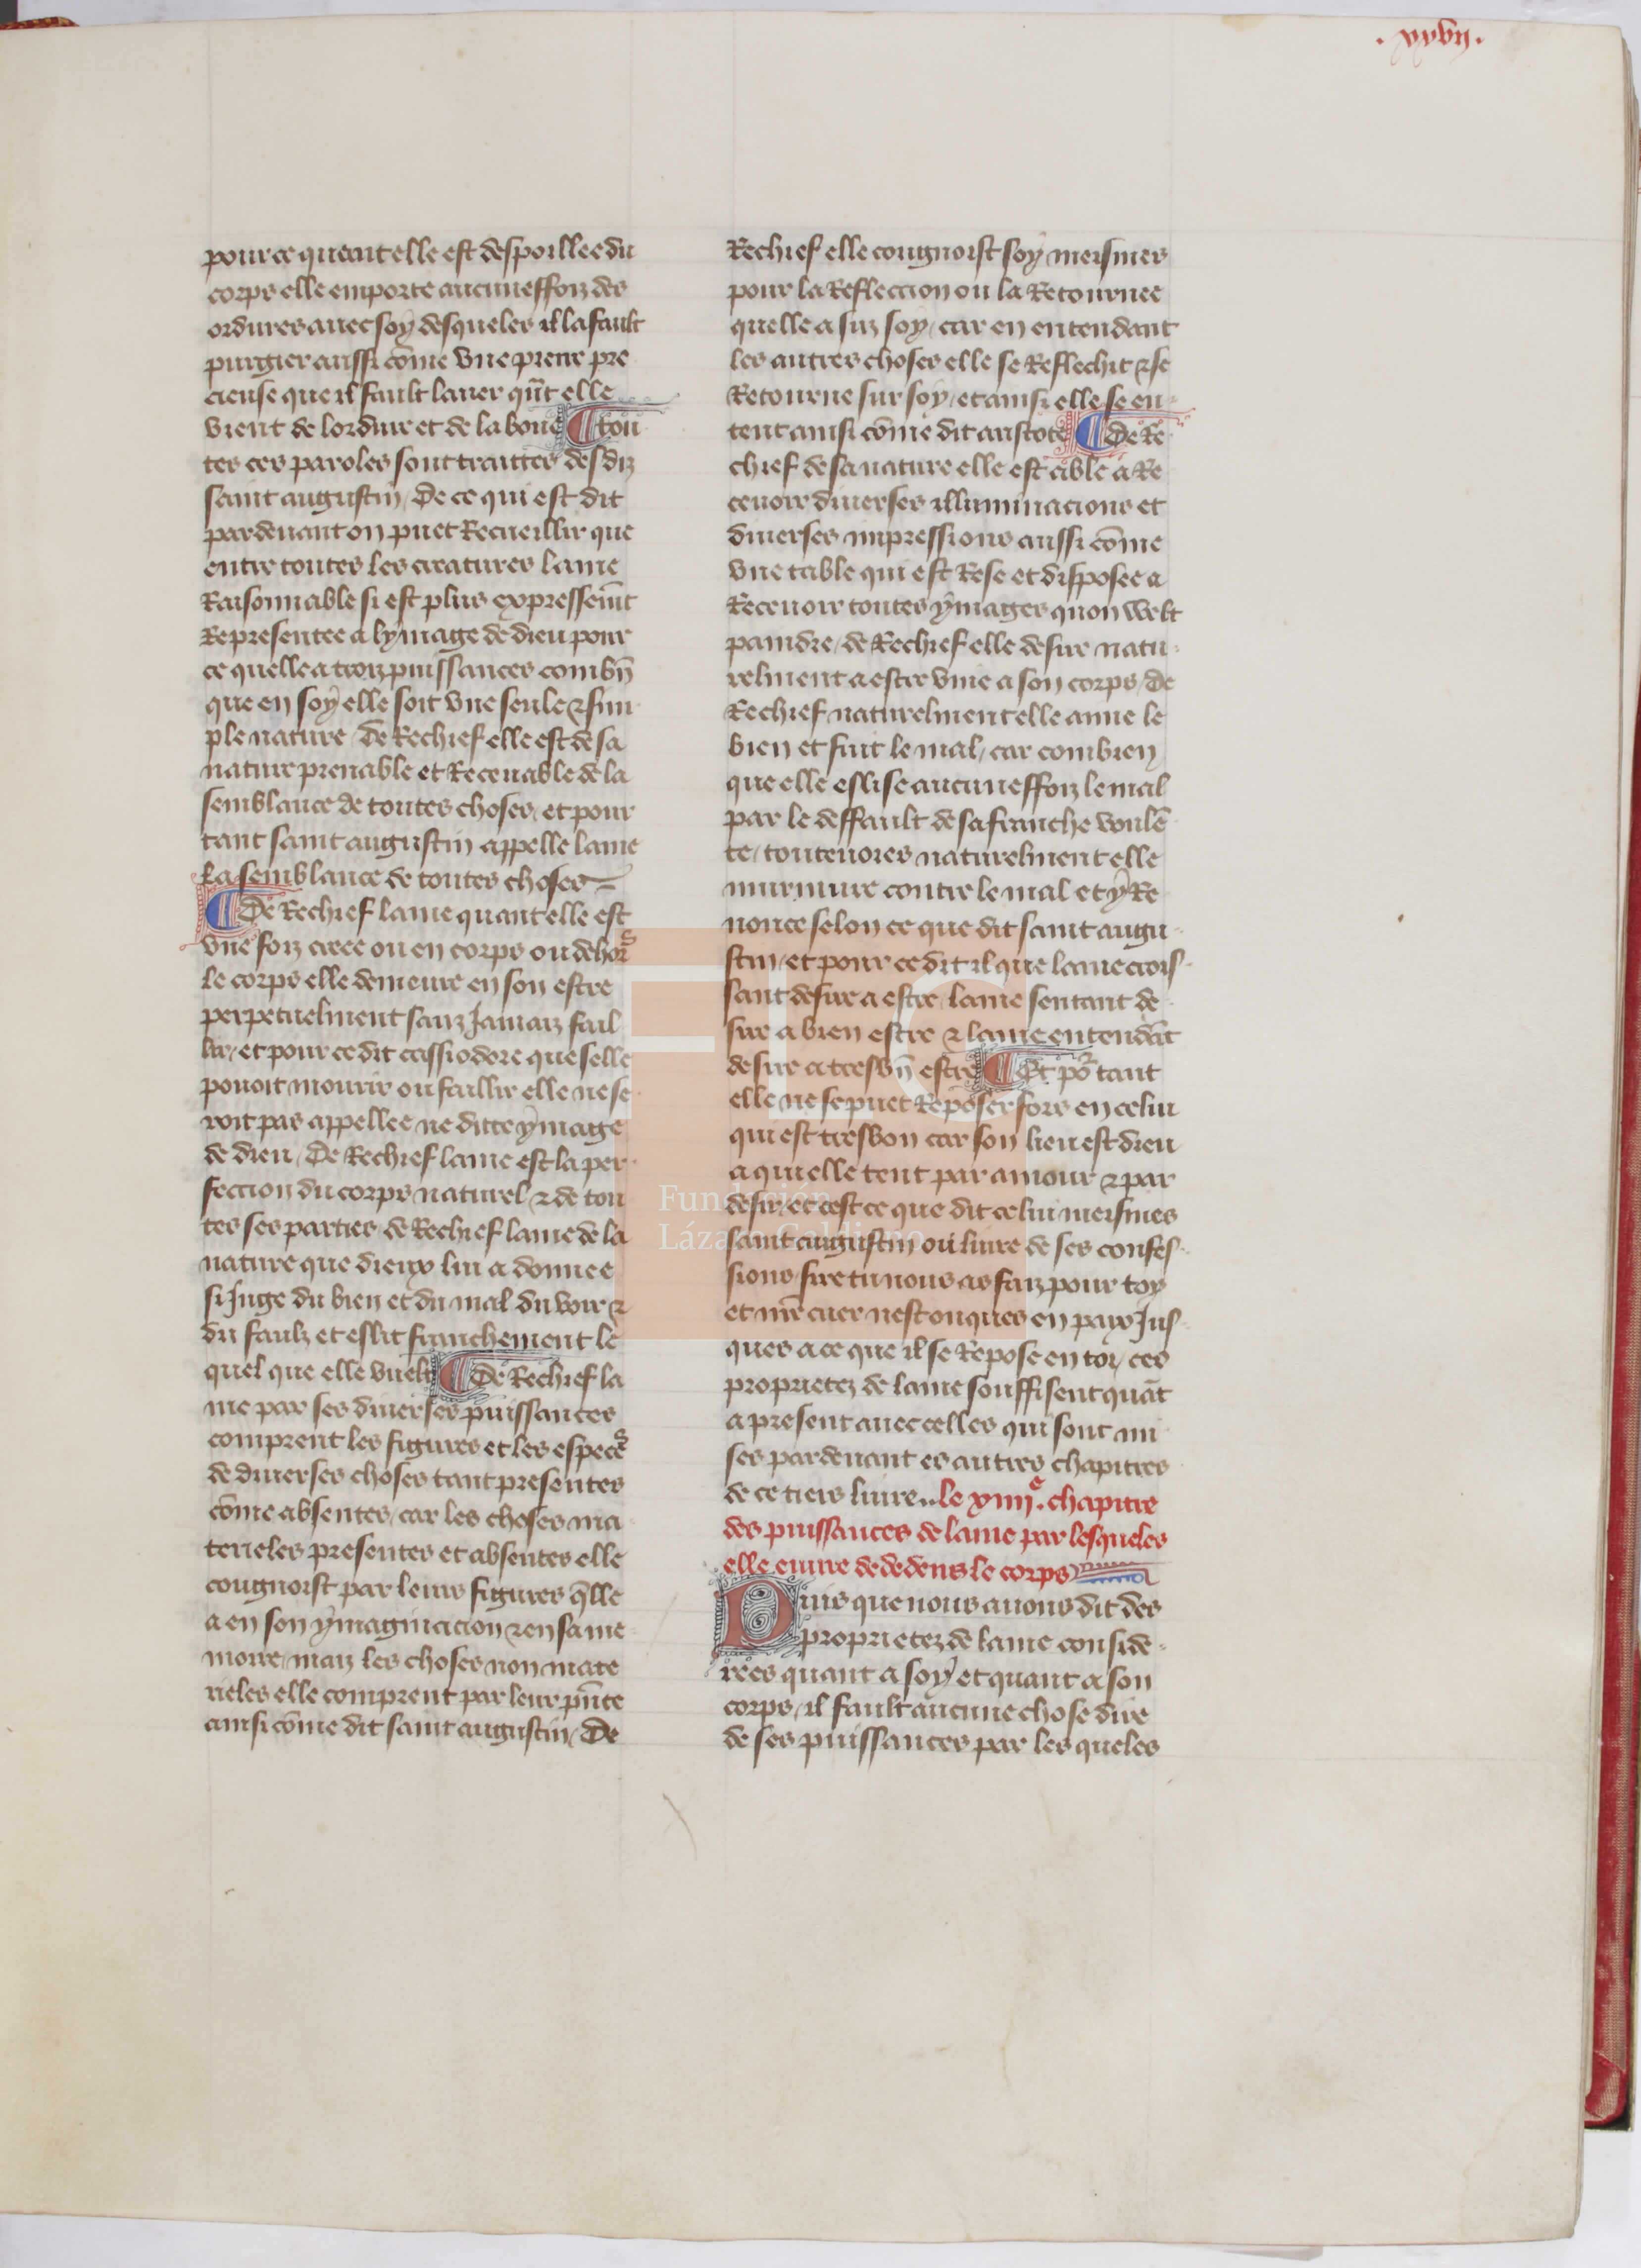 .xxvii.
pour ce quant elle est despoillee du
corps elle emporte aucuneffoiz des
ordures auec soy desqueles il la fault
purgier aussi cōme vne pierre pre
cieuse que il fault lauer qñt elle
vient de lordure et de la boue ¶ tou
tes ces paroles sont traittes des diz
saint augustin / De ce qui est dit
pardeuant on puet Recueillir que
entre toutes les creatures lame
Raisonnable si est plus expressemt̄
Representee a lymage de dieu pour
ce quelle a troiz puissances combn̄
que en soy elle soit vne seule ⁊ sim
ple nature / De Rechief elle est de sa
nature prenable et Receuable de la
semblance de toutes choses / et pour
tant saint augustin appelle lame
La semblance de toutes choses
¶ De Rechief lame quant elle est
vne foiz creee ou en corps ou dehors
le corps elle demeure en son estre
perpetuelment sanz Jamaiz fail
lir / et pour ce dit cassiodore que selle
pouoit mourir ou faillir elle ne se
roit pas appellee ne ditte ymage
de dieu / De Rechief lame est la per
feccion du corps naturel ⁊ de tou
tes ses parties / de Rechief lame de la
nature que dieux lui a donnee
si Juge du bien et du mal du voir ⁊
du faulz et eslit franchement le
quel que elle vuelt ¶ De Rechief la
me par ses diuerses puissances
comprent les figures et les especes
de diuerses choses tant presentes
cōme absentes / car les choses ma
terieles presentes et absentes elle
congnoist par leurs figures q̄lle
a en son ymaginacion ⁊ en sa me
moire / maiz les choses non mate
rieles elle comprent par leur pn̄te
ainsi cōme dit saint augustin / De
Rechief elle congnoist soy meismes
pour la Refleccion ou la Retournee
quelle a suz soy / car en entendant
les autres choses elle se Reflechit ⁊ se
Retourne sur soy / et ainsi elle se en
tent ainsi cōme dit aristote ¶ De Re
chief de sa nature elle est able a Re
ceuoir diuerses illuminacions et
diuerses impressions aussi cōme
vne table qui est Rese et disposee a
Receuoir toutes ymages quon welt
paindre / de Rechief elle desire natu
relment a estre vnie a son corps / De
Rechief naturelment elle aime le
bien et fuit le mal / car combien
que elle eslise aucuneffoiz le mal
par le deffault de sa franche voulē
te / touteuoies naturelment elle
murmure contre le mal et y Re
nonce selon ce que dit saint augu
stin / et pour ce dit il que lame crois
sant desire a estre / lame sentant de
sire a bien estre ⁊ lame entendāt
desire a tresbn̄ estre ¶ Et po͛ tant
elle ne se puet Reposer fors en celui
qui est tresbon car son lieu est dieu
a qui elle tent par amour ⁊ par
desir / et cest ce que dit celui meismes
saint augustin ou liure de ses confes
sions / sire tu nous as faiz pour toy
et nr̄e cuer nest onques en paix Jus
ques a ce que il se Repose en toi / ces
proprietez de lame souffisent quāt
a present auec celles qui sont mi
ses pardeuant es autres chapitres
de ce tiers liure .. le xiiii.e chapitre
des puissances de lame par lesqueles
elle euure de dedens le corps
Puis que nous auons dit des
proprietez de lame conside
rees quant a soy et quant a son
corps / il fault aucune chose dire
de ses puissances par les queles
Fundación
Lázaro Galdiano